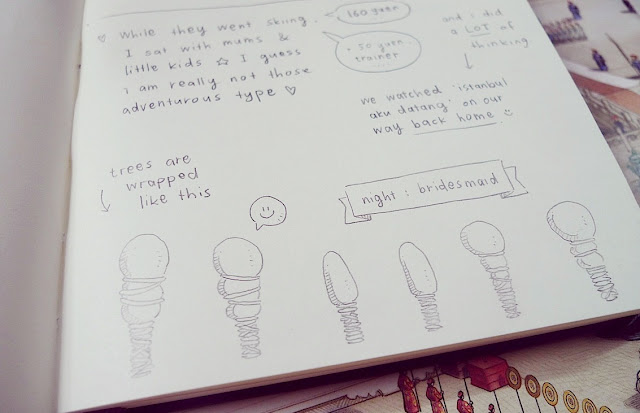 ♡ While they went skiing
I sat with mums &
little kids ☆ I guess
i am really not those
adventurous type ♡
160 yuan
+ 50 yuan
trainer
and i did
a LOT of
thinking
we watched 'istanbul
aku datang' on our
way back home
trees are
wrapped
like this
night : bridesmaid